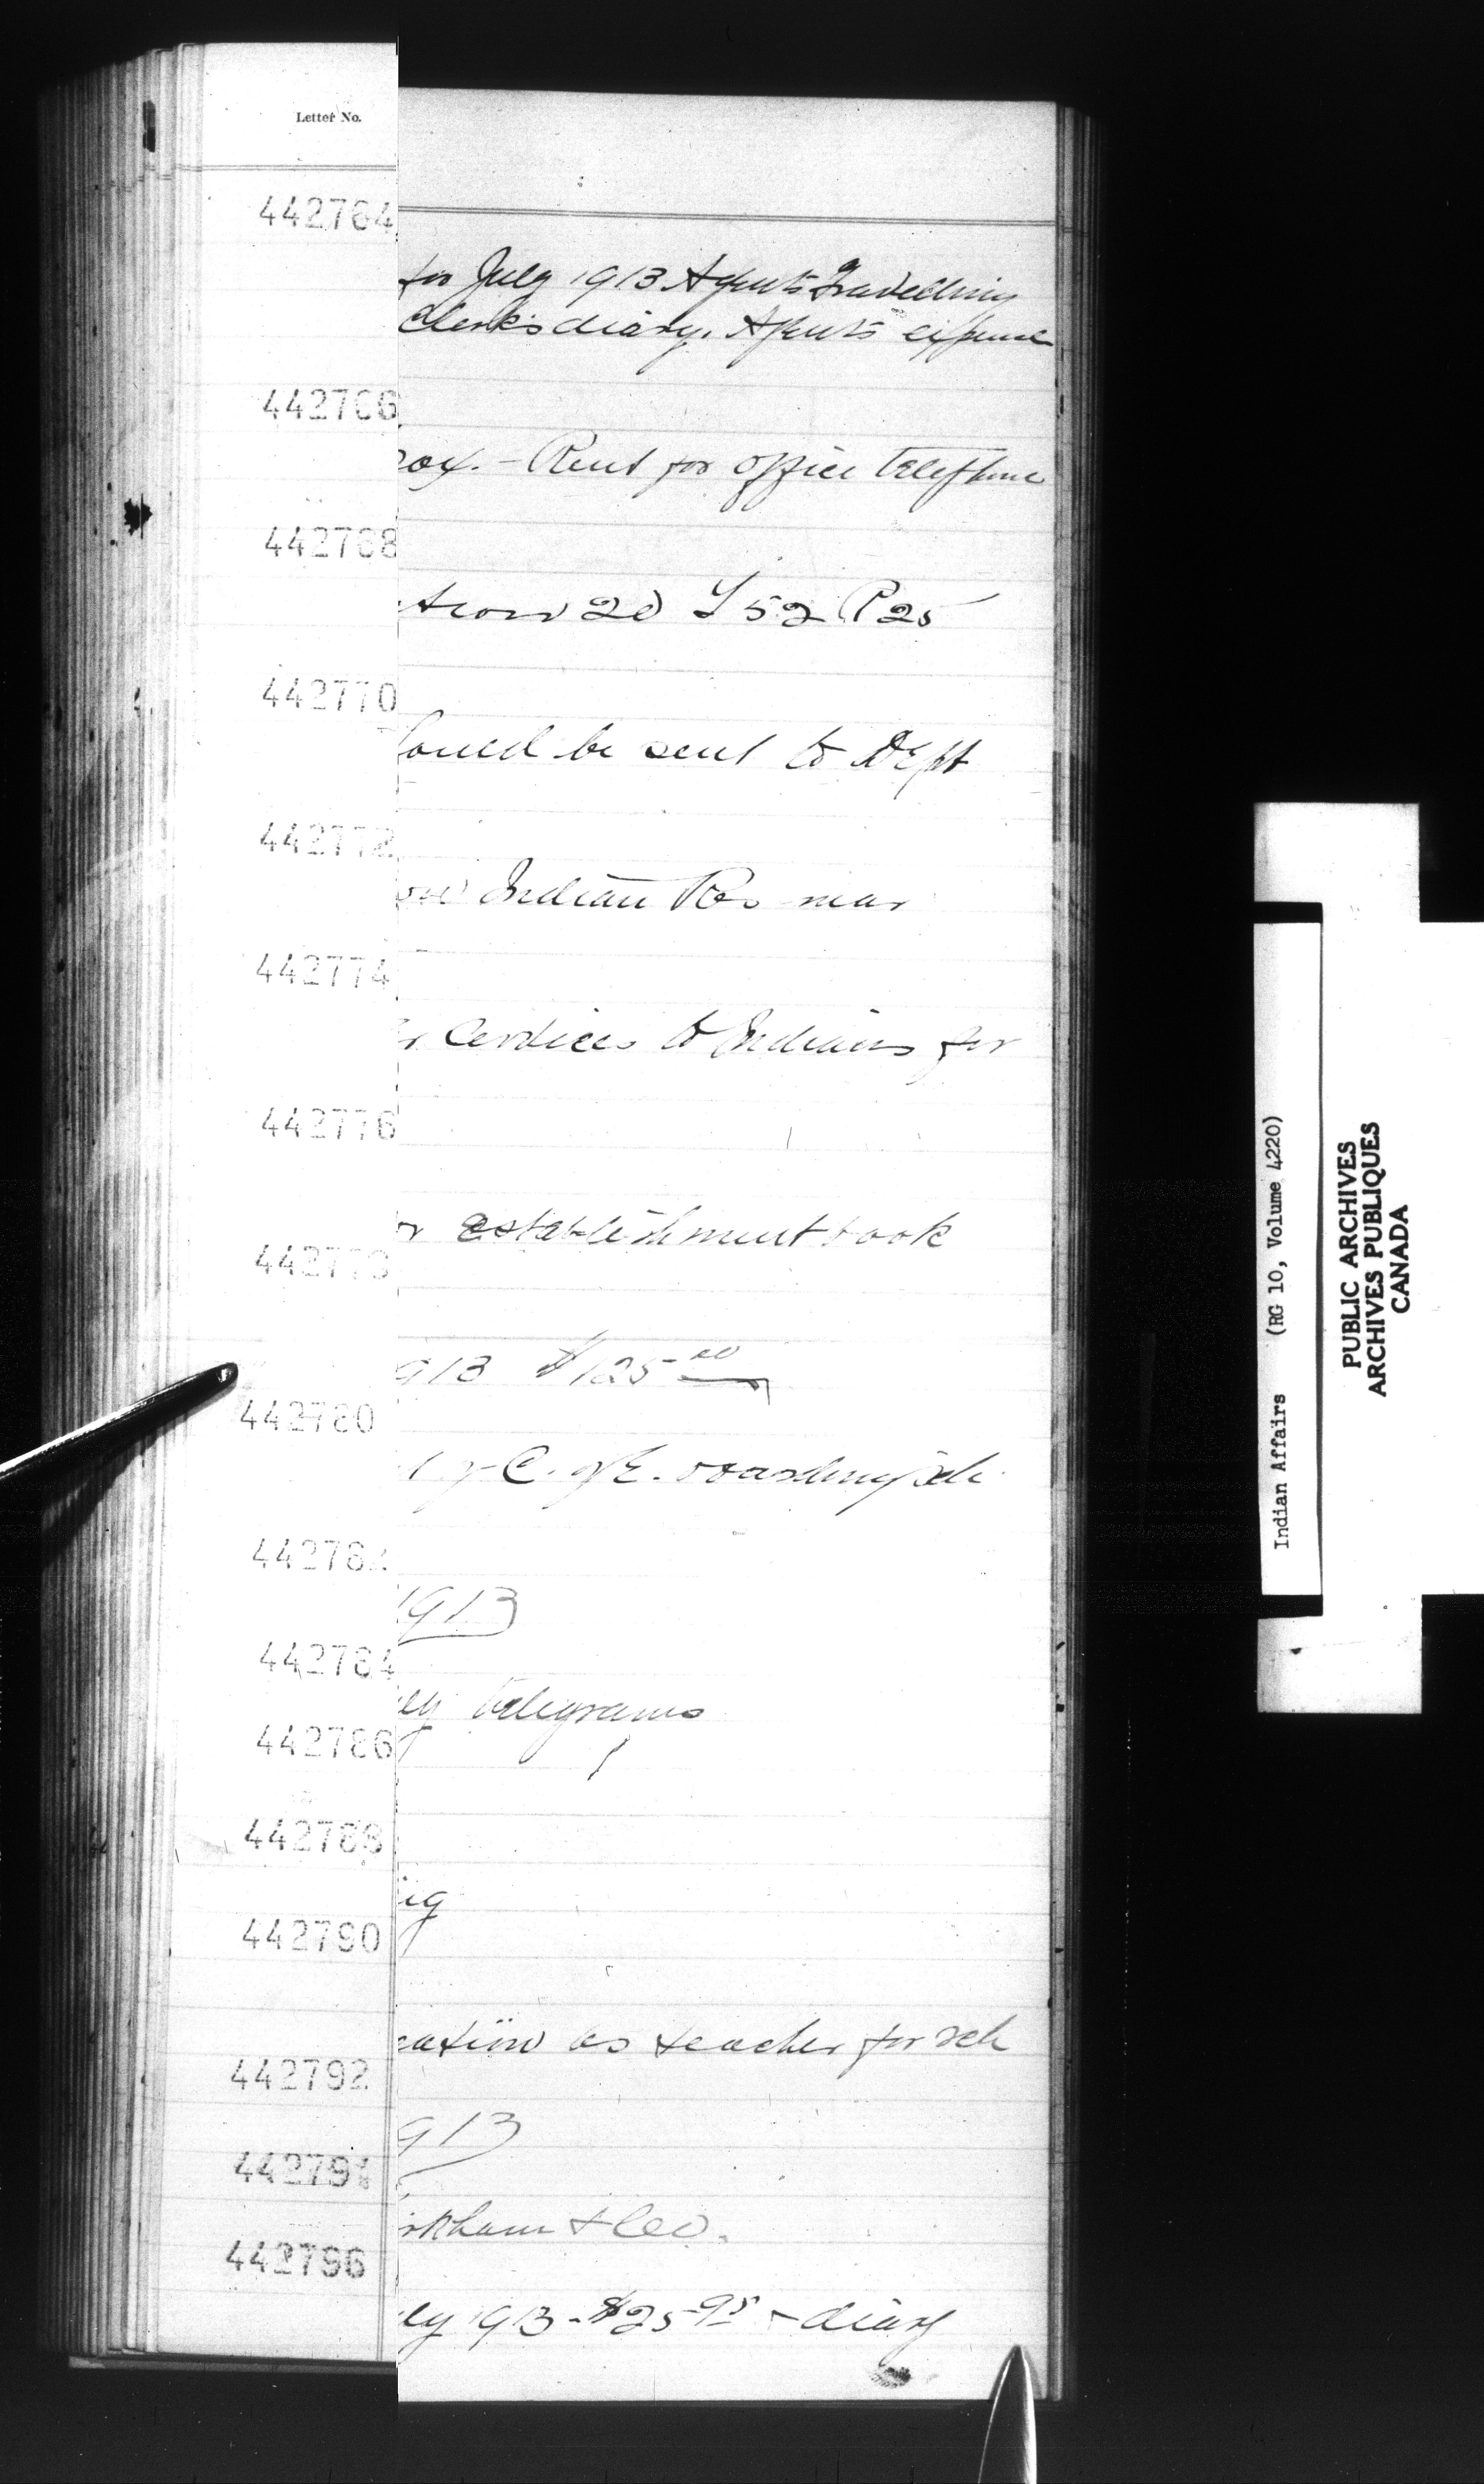 Letter No.
442764
for July 1913 Agents Travelling
Clerks diary. Agents expense
442766
Rent for office telephone
442768
20 T 52 R 25
442770
be sent to Dept
442772
Indian Res near
442774
Services to Indians for
442776
establishment book
442778
913 $125.00
442780
C. of E. boarding sch
44278
1913
442784
telegrams
442786
442788
442790
cation as teacher for sch
442792
913
44279
rkham & Co.
442796
ly 1913 - $25.95 & diary
Indian Affairs (RG 10, Volume 4220)
PUBLIC ARCHIVES
ARCHIVES PUBLIQUES
CANADA